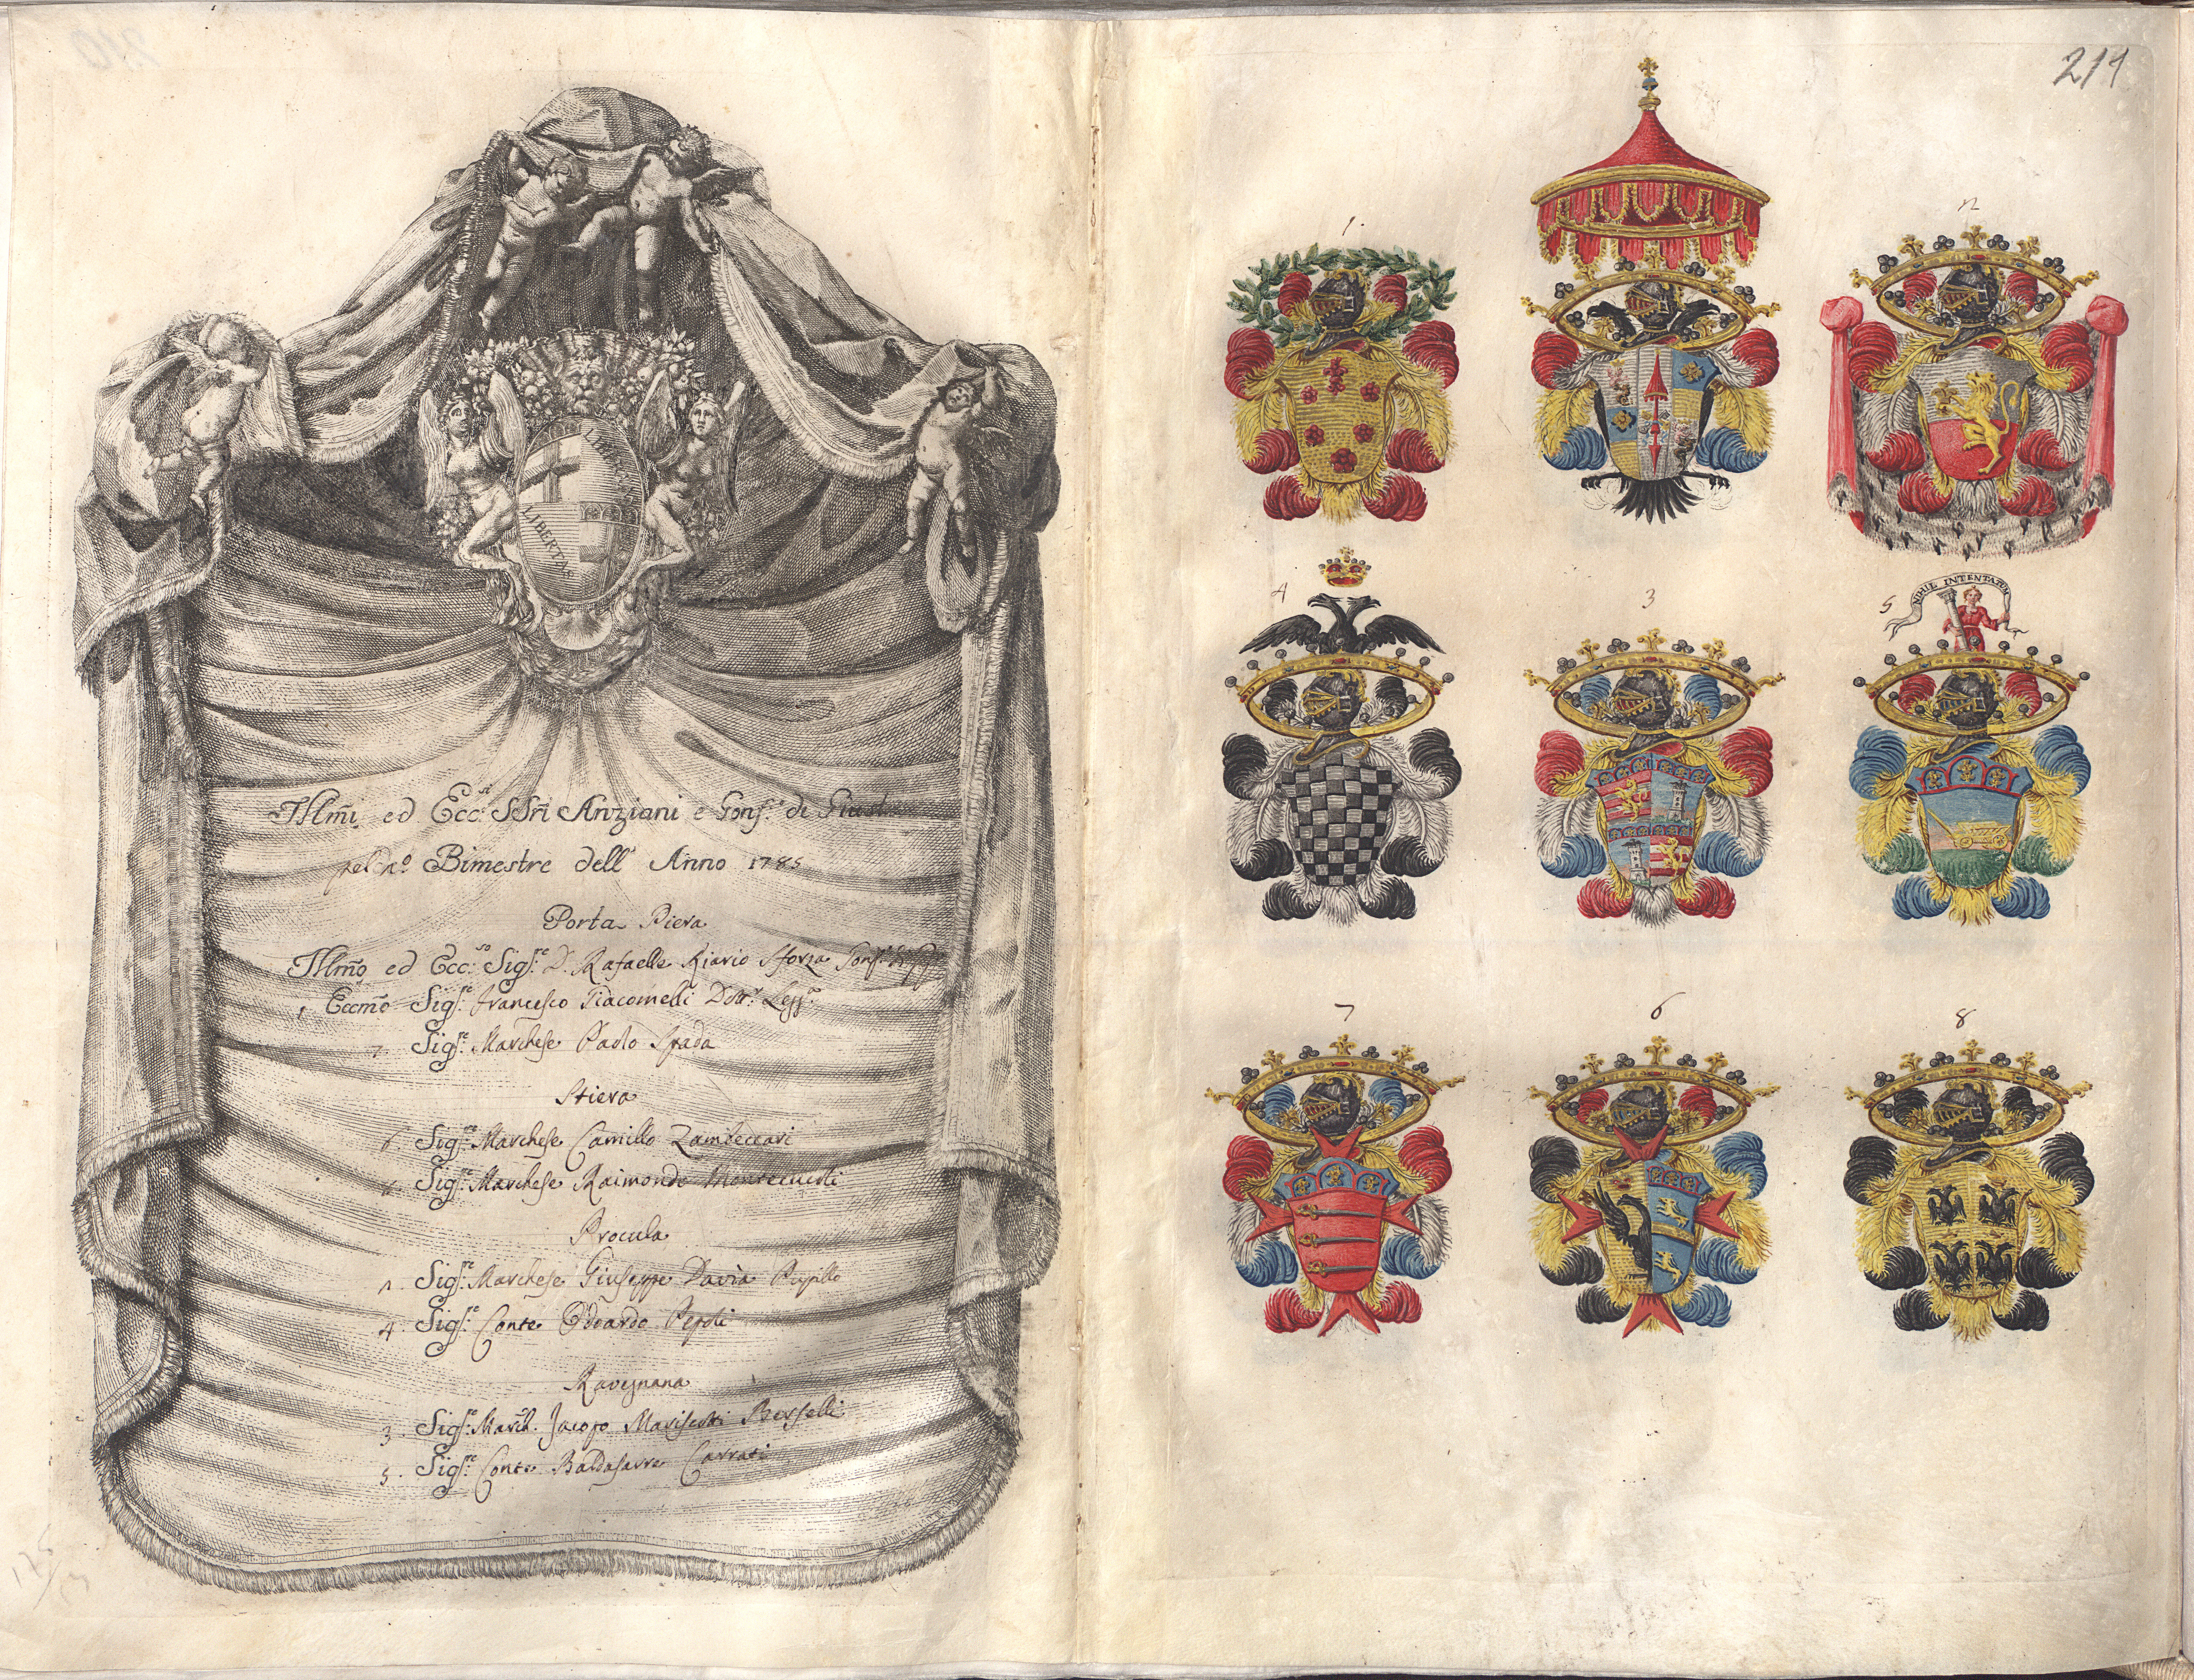 LIBERTAS
LIBERTAS
Illm̃i ed Ecc:si SSri Anziani e Gonf:e di Giust
pel 2o Bimestre dell' Anno 1785
Porta Piera
Illm̃o ed Ecc:so Sigr:e D. Rafaelle Riario Sforza Gonf:e di
1 Eccm̃o Sigr:e Francesco Giacomelli Dottr: Legg:a
7. Sigr:e Marchese Paolo Spada
Stiera
6. Sigr:e Marchese Camillo Zambeccari
Sigr:e Marchese Raimondo Montecucoli
Procula
2. Sigr:e Marchese Giuseppe Davia Pupillo
4. Sigr:e Conte Odoardo Pepoli
Ravegnana
3. Sigr:e March. Jacopo Mariscotti Berselli
5. Sigr:e Conte Baldasarre Carrati
211
1.
2
4
3
5
NIHIL INTENTATUM
7
6
8